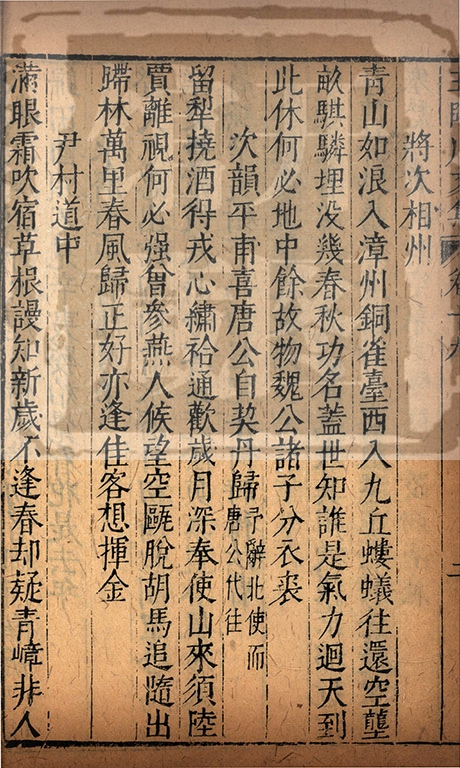 將次相州
青山如浪入漳州銅雀臺西八九丘螻蟻往還空壟
畝騏驎埋没幾春秋功名蓋世知誰是氣力迴天到
此休何必地中餘故物魏公諸子分衣裘
次韻平甫喜唐公自契丹歸予辭北使而
唐公代往
留犁撓酒得戎心繡袷通歡歲月深奉使山來須陸
賈離視何必强曾參燕人候望空甌脫胡馬追隨出
蹛林萬里春風歸正好亦逢佳客想揮金
尹村道中
滿眼霜吹宿草根謾知新歲不逢春却疑青嶂非人